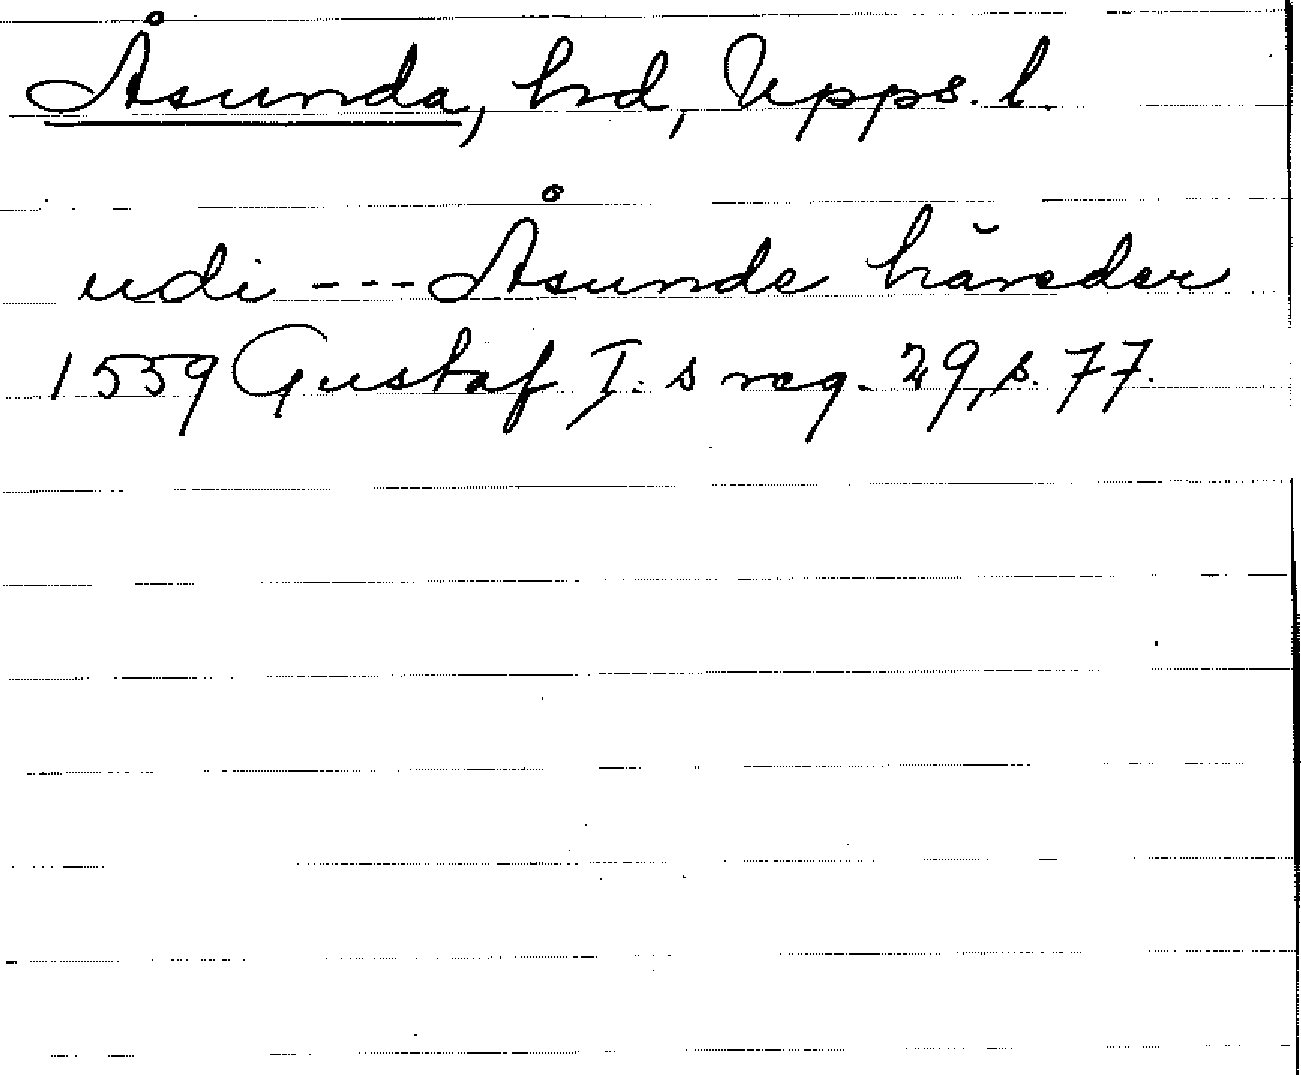 Åsunda, hrd, Upps. l.
udi --- Åsunde häreder
1559 Gustaf I:s reg. 29, s. 77.